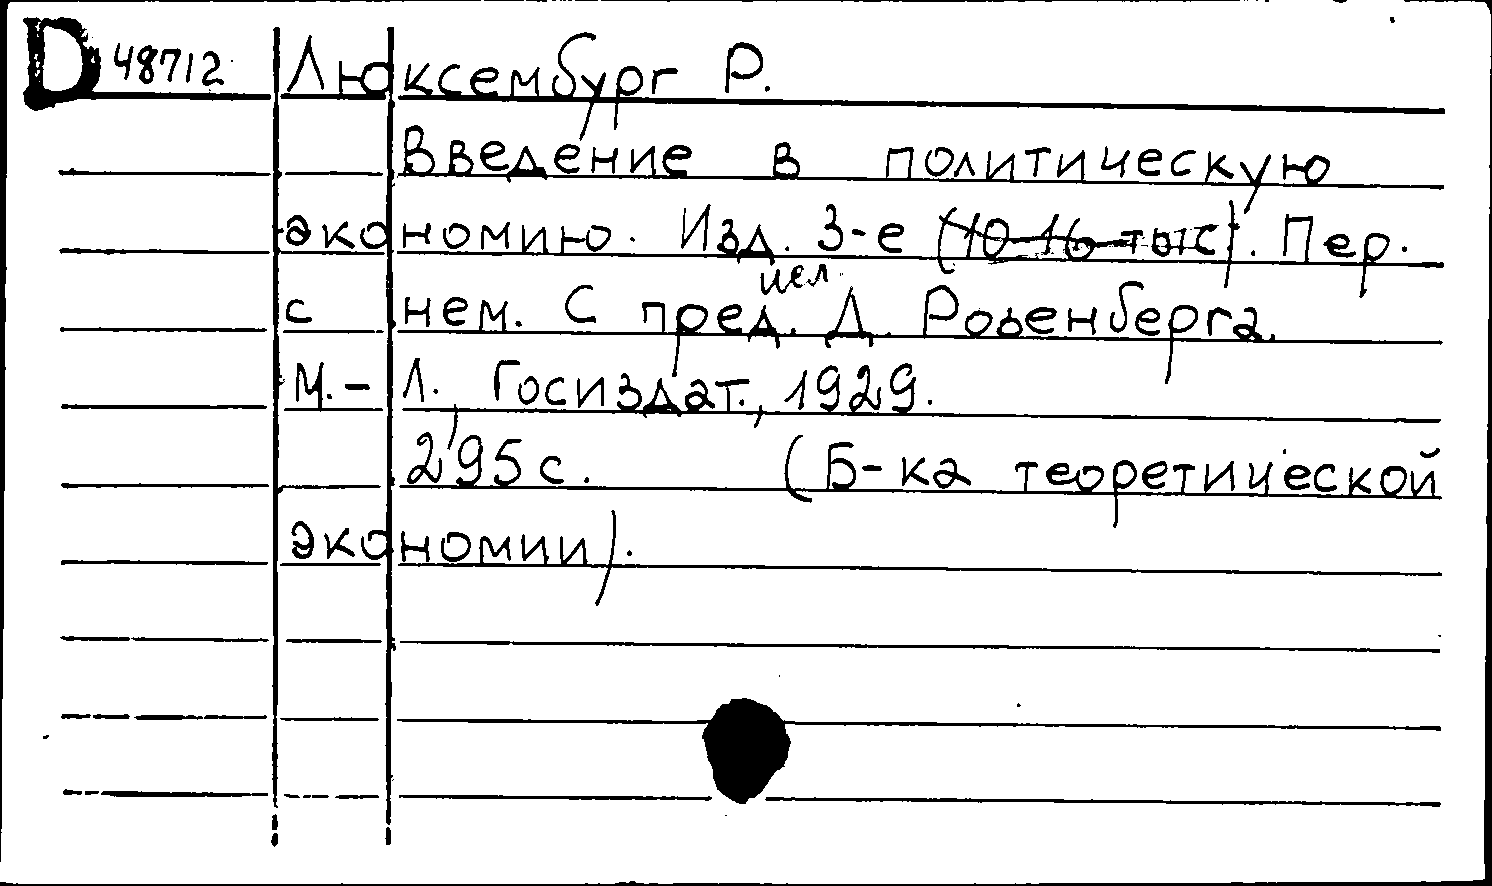 D 48712 Люксембург Р.
Введение в политическую
экономию. Изд. 3-е (10-16 тыс). Пер.
с нем. С предисл. Д. Розенберга.
М.-Л., Госиздат., 1929.
295 с. (Б-ка теоретической
экономии).